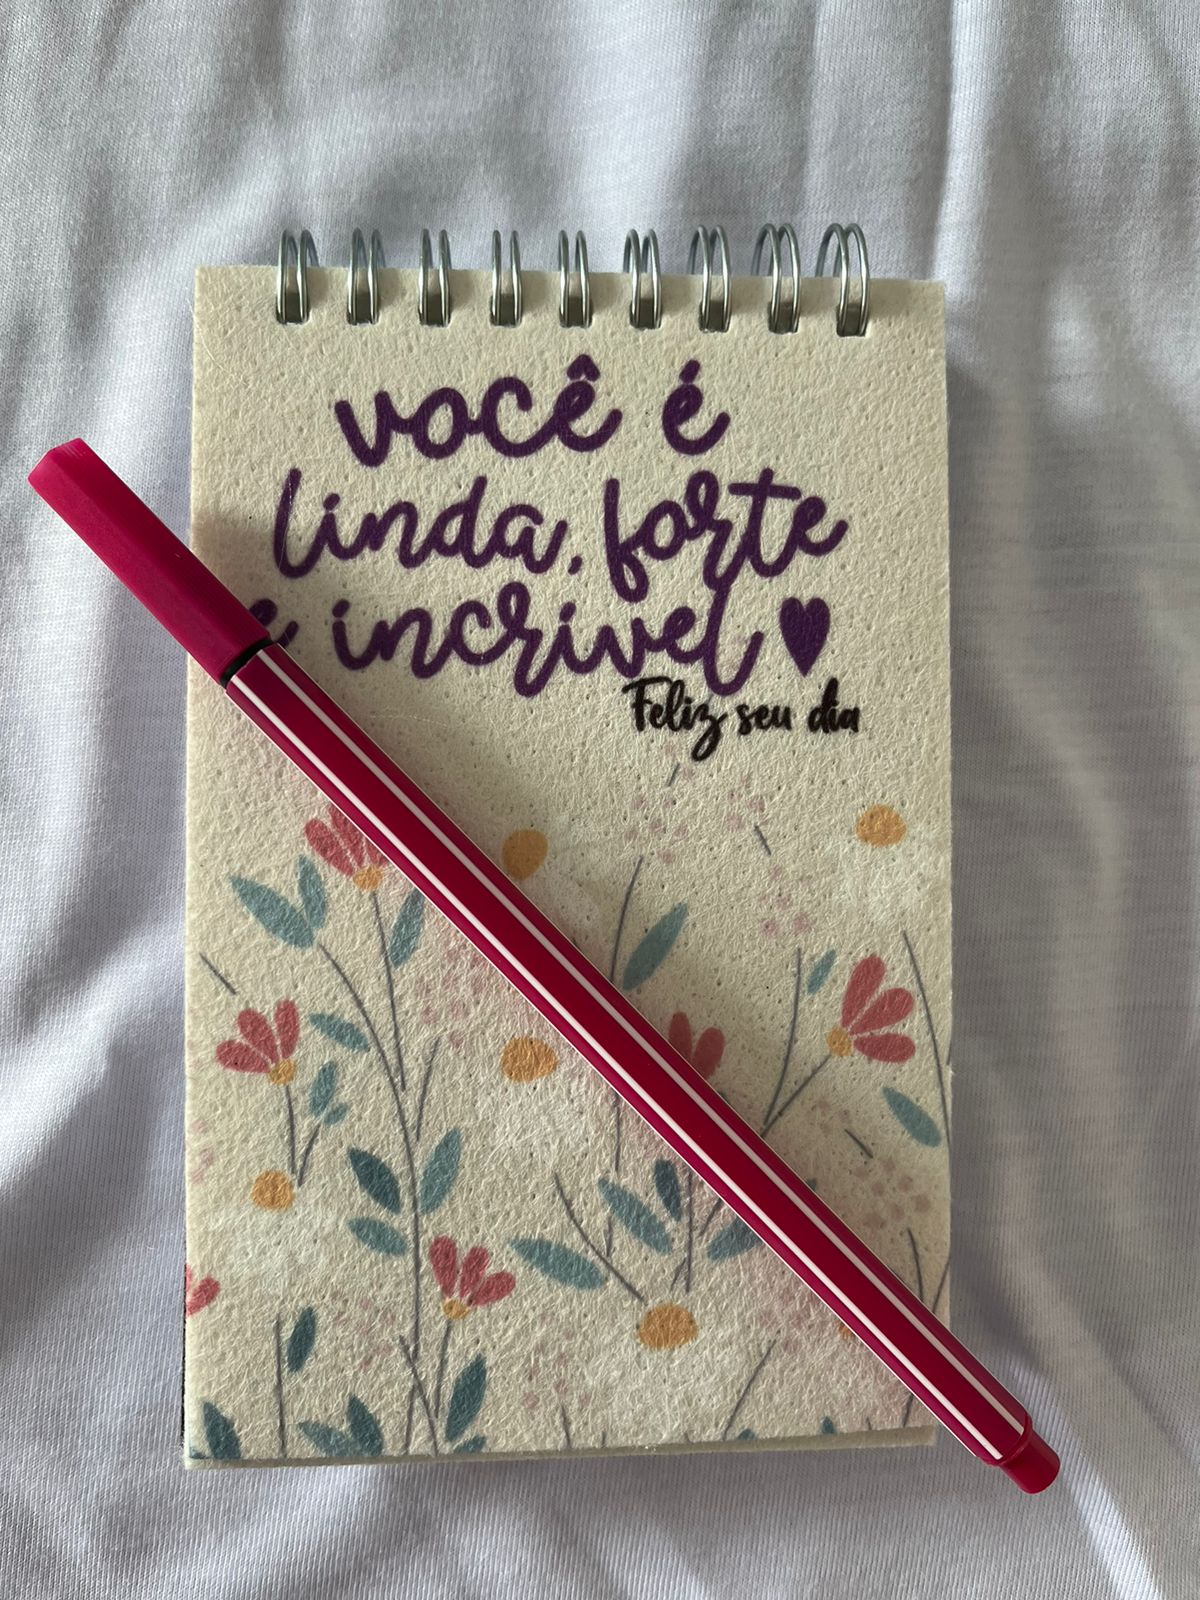 você é
linda, forte
e incrivel
Feliz seu dia